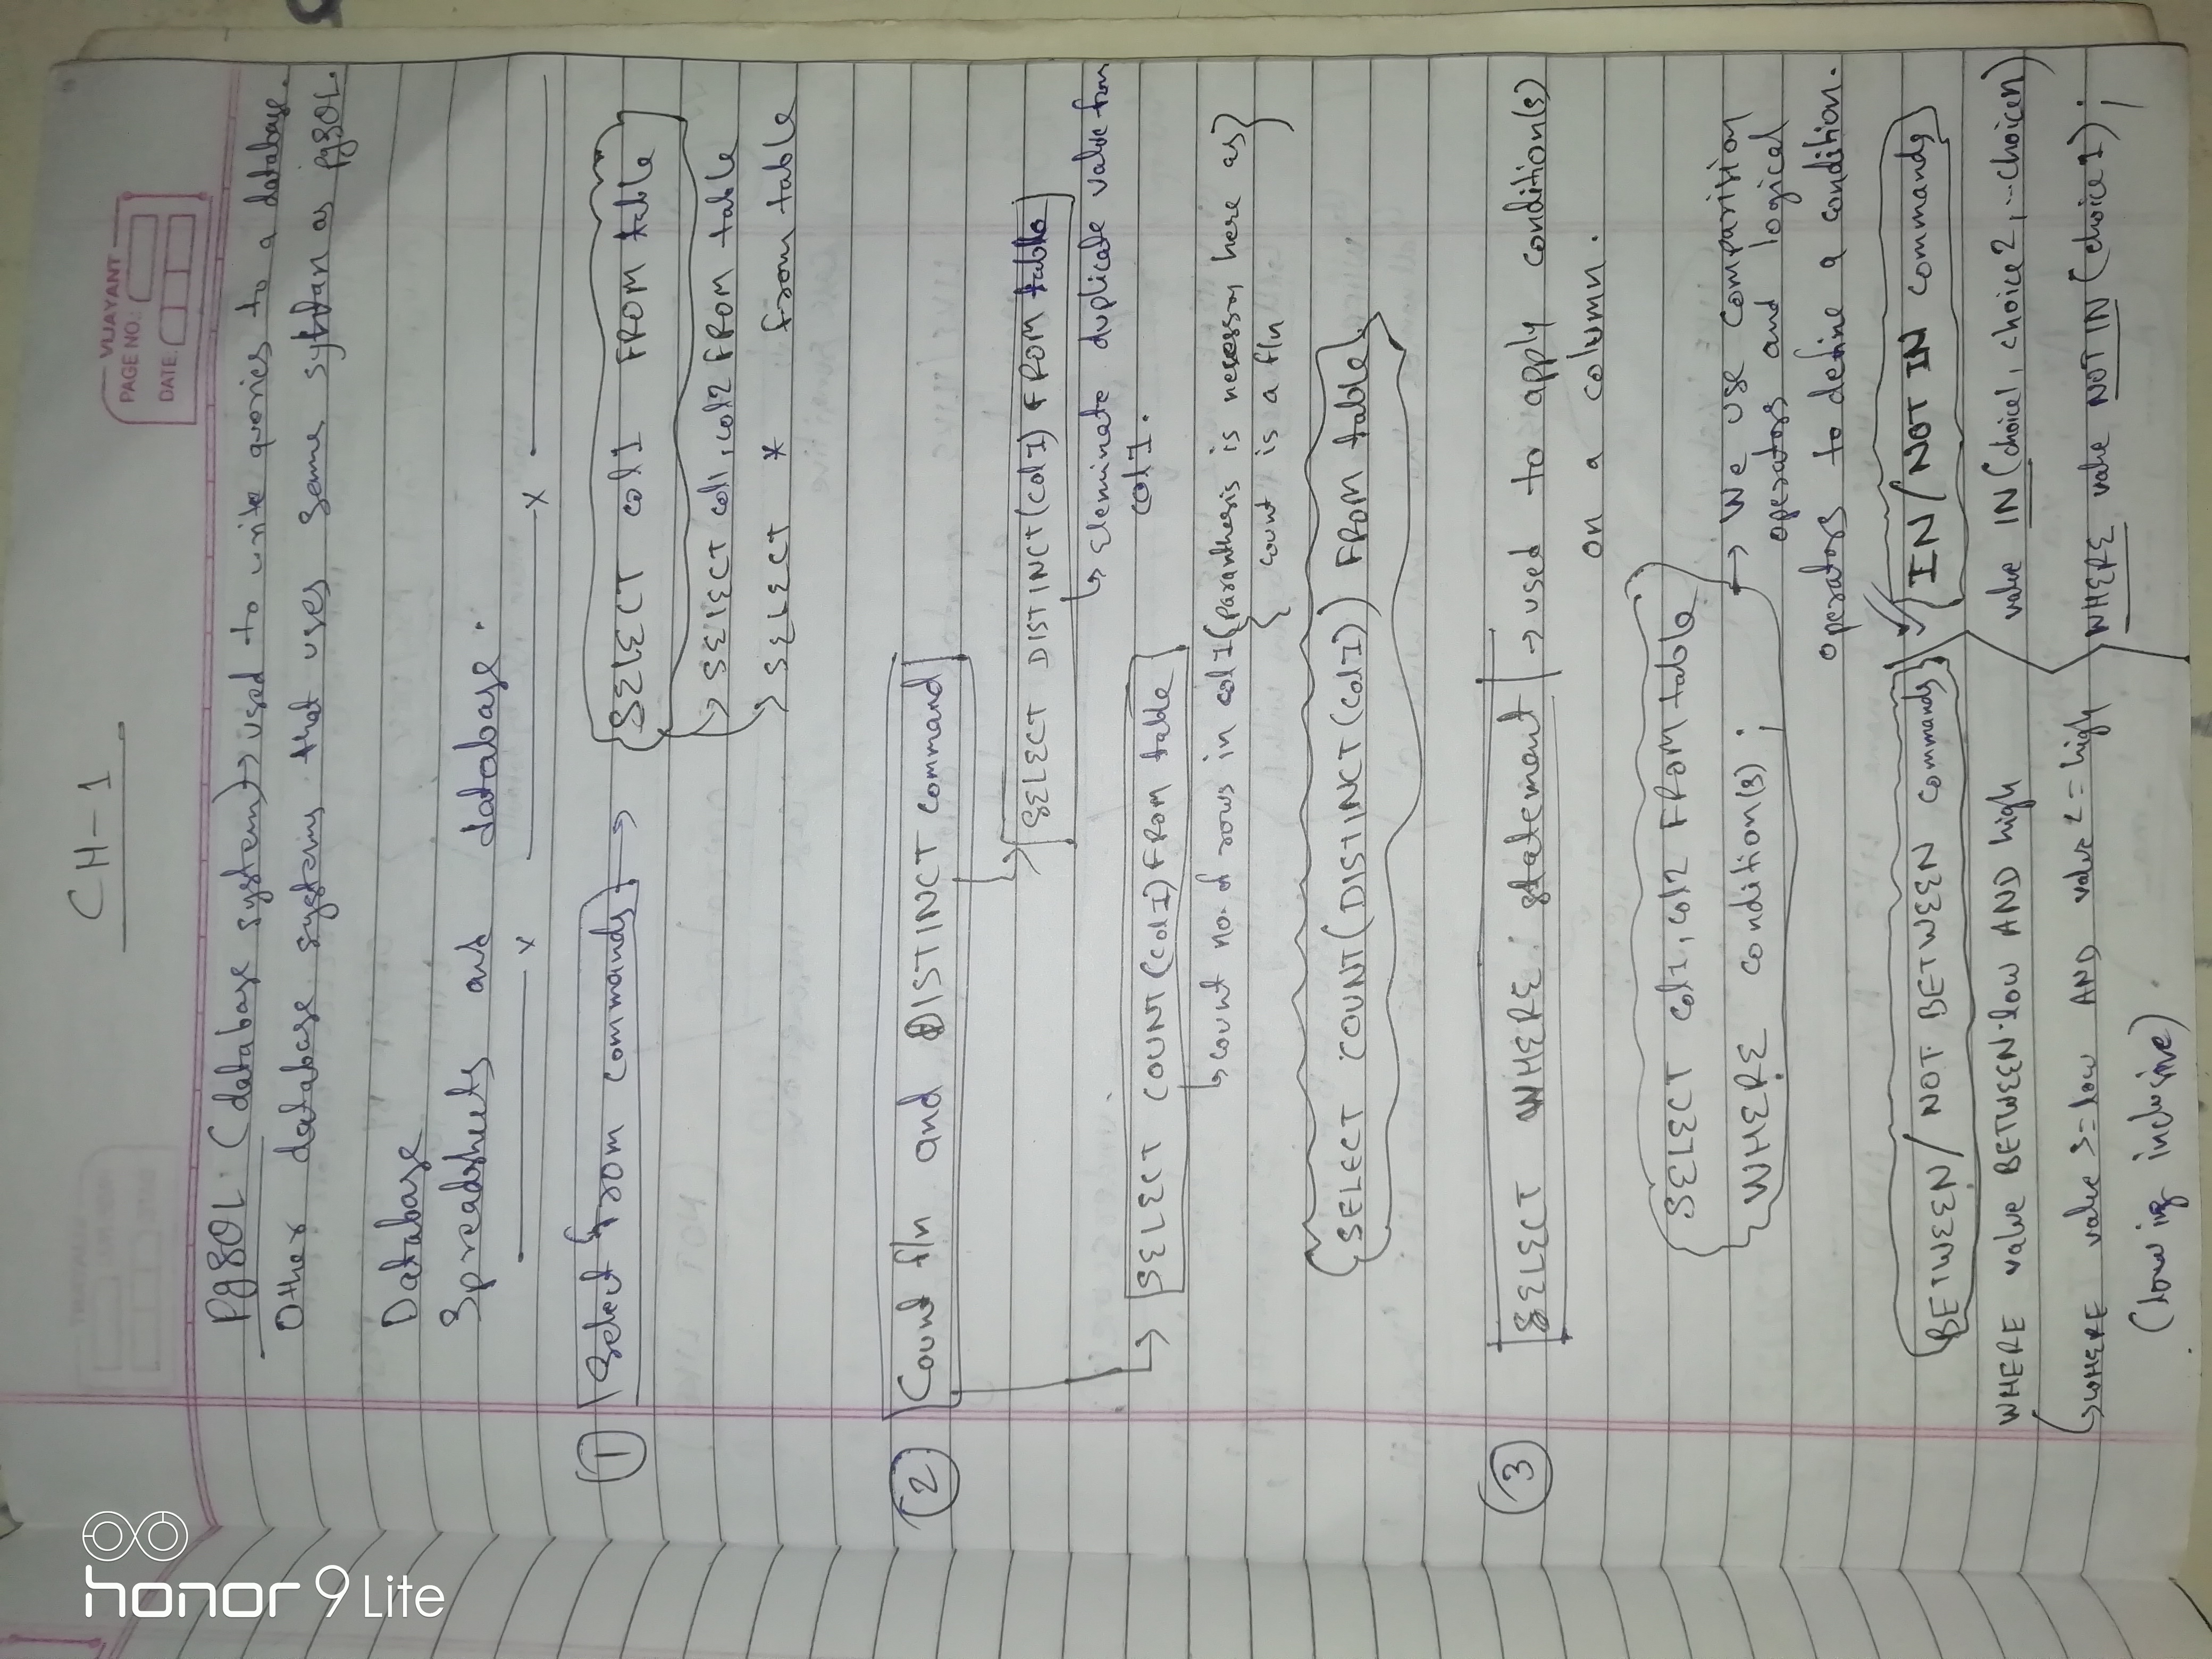 CH-1
VIJAYANT
PAGE NO.:
DATE:
honor 9 Lite
PgSQL: (database system) → used to write queries to a database.
Other database systems that uses same as pgSQL.
Database
Spreadsheets and database.
x x
① Select from commands → SELECT col1 FROM table
→ SELECT col1, col2 FROM table
→ SELECT * from table
② Count f/n and DISTINCT command
→ SELECT DISTINCT(col1) FROM table
↳ Eleminate duplicate value from
col1.
→ SELECT COUNT(col1) FROM table
↳ count no. of rows in col1 {paranthesis is necessary here as}
{count is a f/n}
SELECT COUNT(DISTINCT(col1)) FROM table
③ SELECT WHERE statement → used to apply condition(s)
on a column.
SELECT col1, col2 FROM table
WHERE condition(s);
→ We use comparision
operators and logical
operators to define a condition.
BETWEEN/NOT BETWEEN commands
WHERE value BETWEEN low AND high
↳ WHERE value >= low AND value <= high
(low is inclusive)
✓ IN/NOT IN commands
value IN (choice1, choice2, ...choicen)
WHERE value NOT IN (choice1);